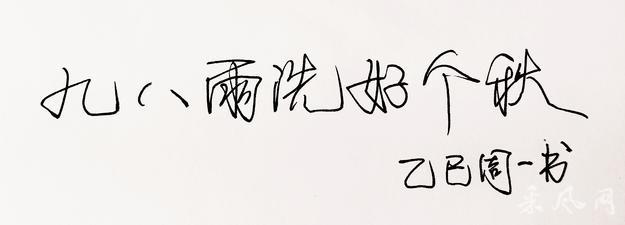 九八雨洗好个秋
乙巳周一书
采风网